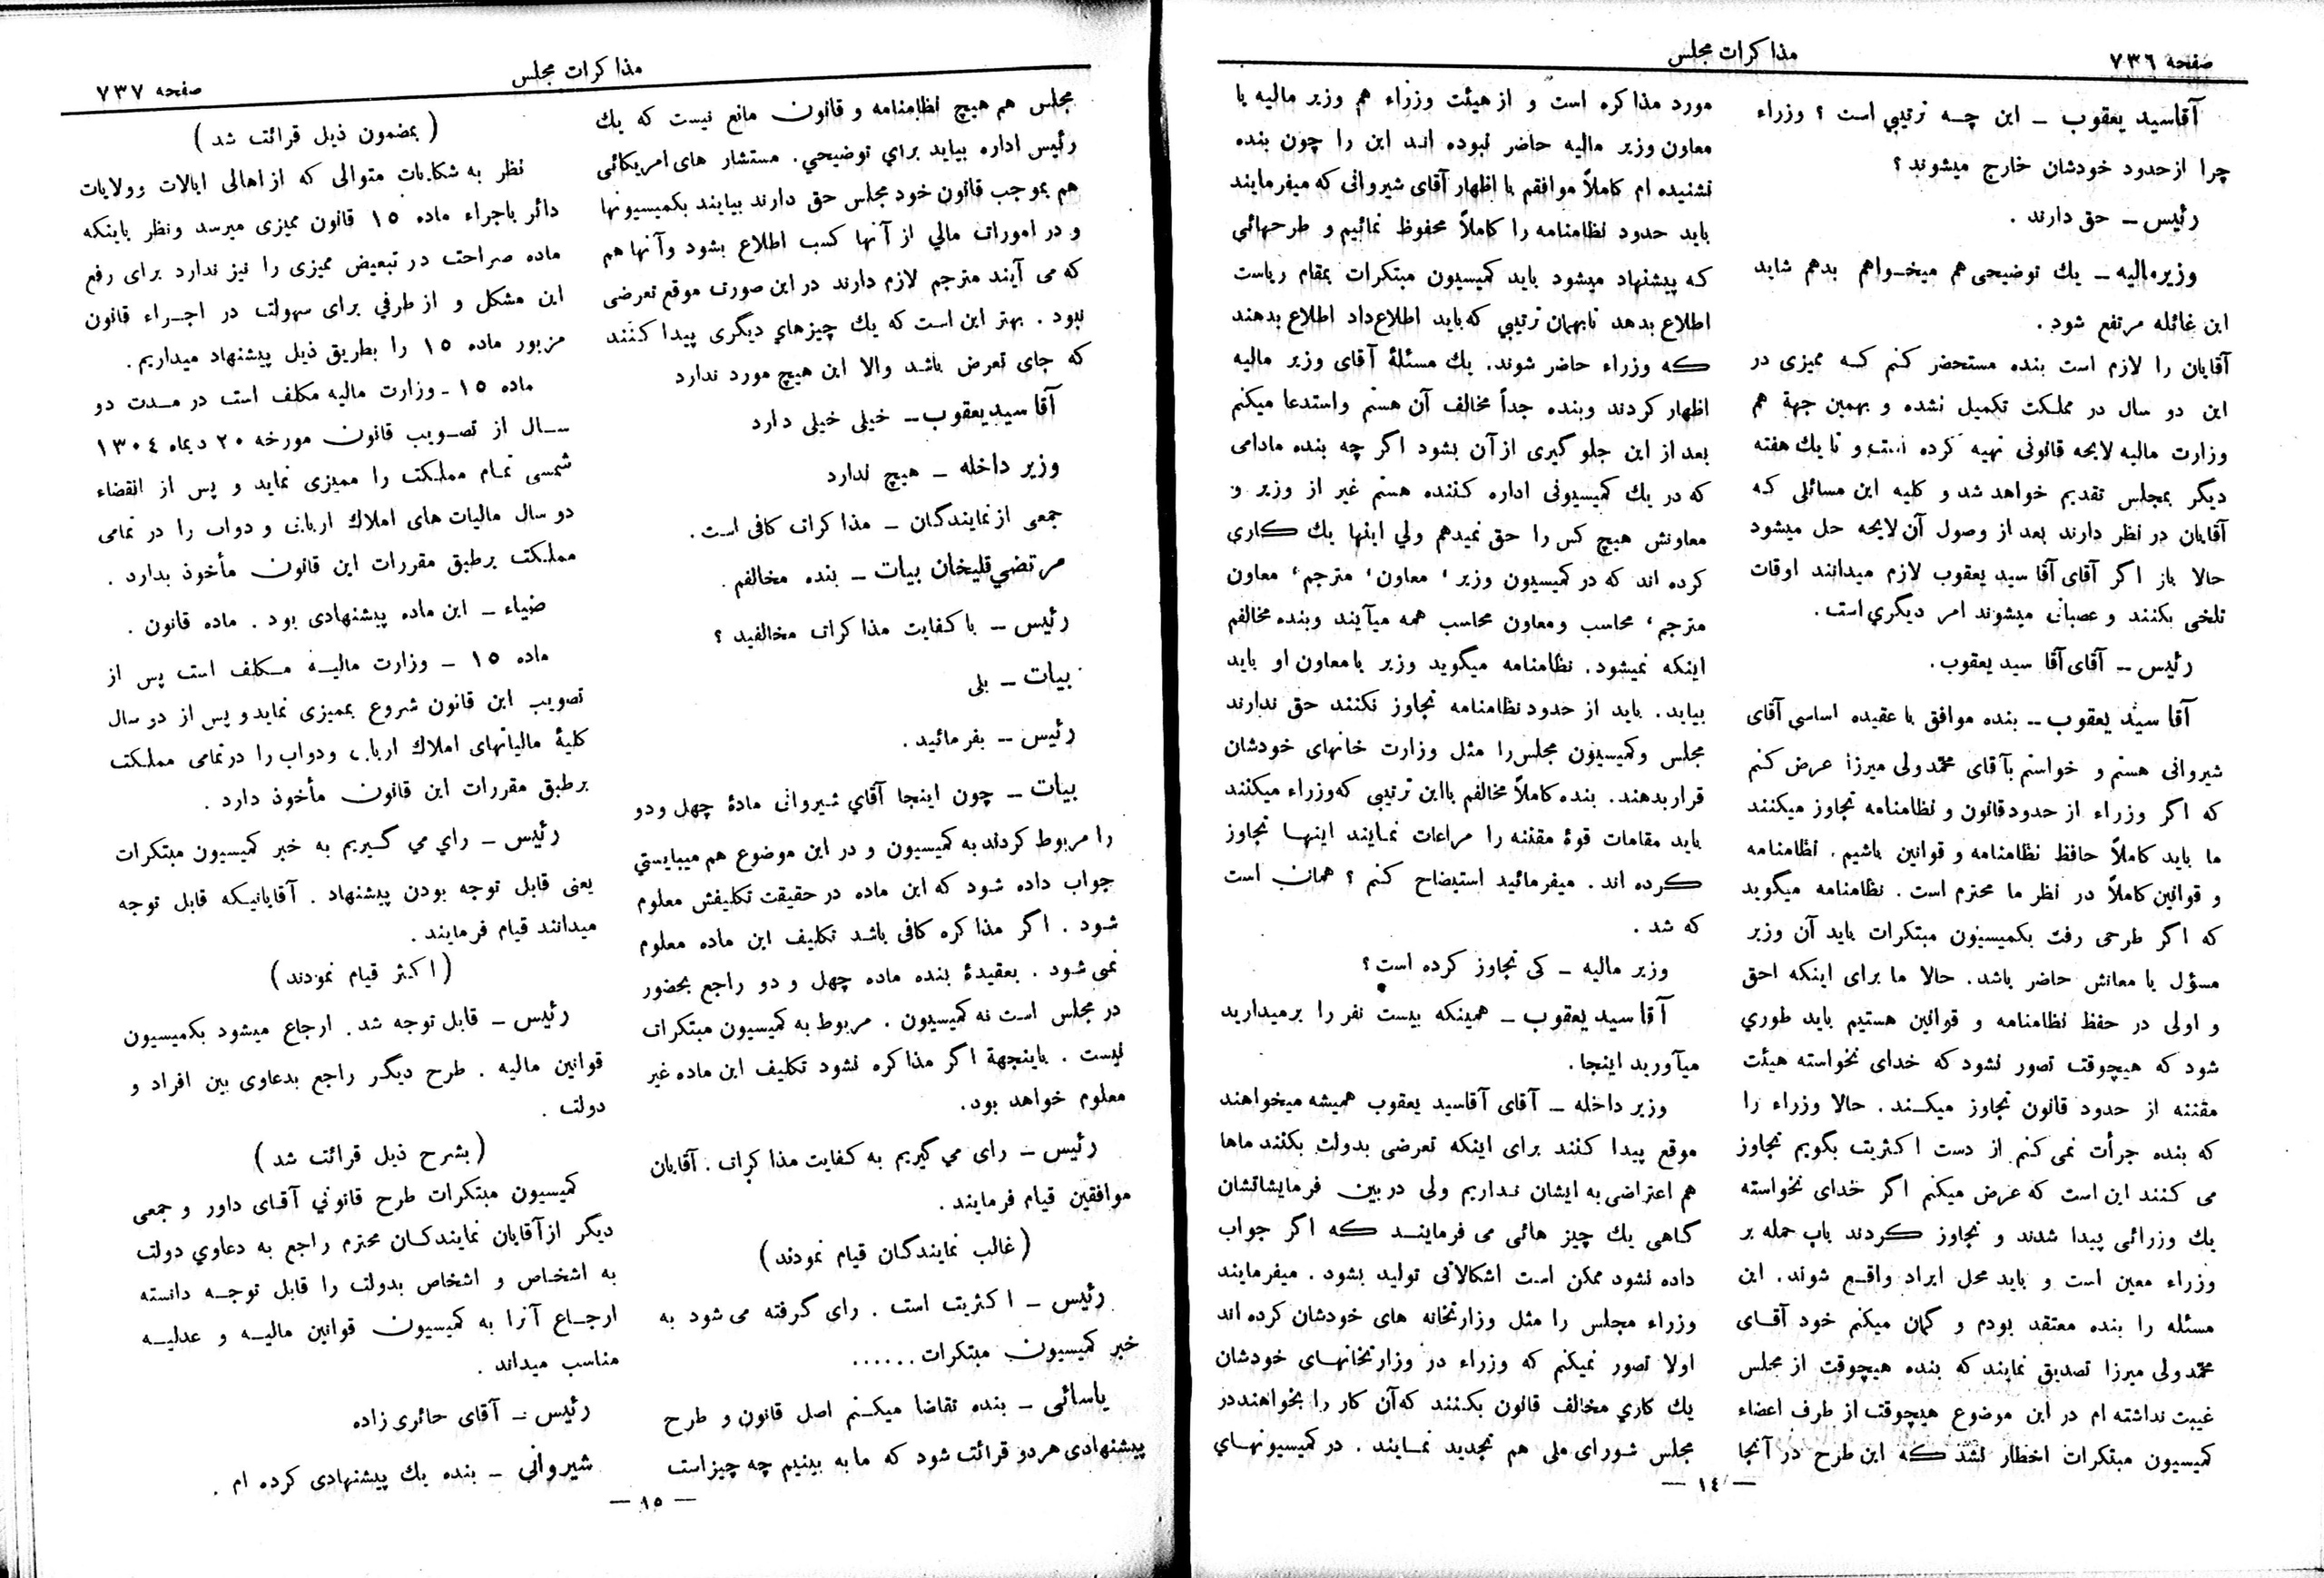 صفحه ٧٣٦
مذاكرات مجلس
آقاسيد يعقوب ــ اين چه ترتيبي است ؟ وزراء
چرا ازحدود خودشان خارج ميشوند ؟
رئيس ــ حق دارند .
وزيرماليه ــ يك توضيحی هم ميخواهم بدهم شايد
اين غائله مرتفع شود.
آقايان را لازم است بنده مستحضر كنم كه مميزی در
اين دو سال در مملكت تكميل نشده و بهمين جهة هم
وزارت ماليه لايحه قانونی تهيه كرده است و تا يك هفته
ديگر بمجلس تقديم خواهد شد و كليه اين مسائلی كه
آقايان در نظر دارند بعد از وصول آن لايحه حل ميشود
حالا باز اگر آقای آقا سيد يعقوب لازم ميدانند اوقات
تلخی بكنند و عصبانی ميشوند امر ديگري است.
رئيس ــ آقای آقا سيد يعقوب.
آقا سيد يعقوب ــ بنده موافق با عقيده اساسی آقای
شيروانی هستم و خواستم بآقای محمدولی ميرزا عرض كنم
كه اگر وزراء از حدود قانون و نظامنامه تجاوز ميكنند
ما بايد كاملاً حافظ نظامنامه و قوانين باشيم . نظامنامه
و قوانين كاملاً در نظر ما محترم است . نظامنامه ميگويد
كه اگر طرحی رفت بكميسيون مبتكرات بايد آن وزير
مسؤل يا معانش حاضر باشد. حالا ما برای اينكه احق
و اولی در حفظ نظامنامه و قوانين هستيم بايد طوري
شود كه هيچوقت تصور نشود كه خدای نخواسته هيئت
مقننه از حدود قانون تجاوز ميكند . حالا وزراء را
كه بنده جرأت نمی كنم از دست اكثريت بگويم تجاوز
می كنند اين است كه عرض ميكنم اگر خدای نخواسته
يك وزرائی پيدا شدند و تجاوز كردند باب حمله بر
وزراء معين است و بايد محل ايراد واقع شوند. اين
مسئله را بنده معتقد بودم و گمان ميكنم خود آقای
محمدولی ميرزا تصديق نمايند كه بنده هيچوقت از مجلس
غيبت نداشته ام در اين موضوع هيچوقت از طرف اعضاء
كميسيون مبتكرات اخطار نشد كه اين طرح در آنجا
مورد مذاكره است و از هيئت وزراء هم وزير ماليه يا
معاون وزير ماليه حاضر نبوده اند اين را چون بنده
نشنيده ام كاملاً موافقم با اظهار آقای شيروانی كه ميفرمايند
بايد حدود نظامنامه را كاملاً محفوظ نمائيم و طرحهائی
كه پيشنهاد ميشود بايد كميسيون مبتكرات بمقام رياست
اطلاع بدهد تابهمان ترتيبي كه بايد اطلاع داد اطلاع بدهند
كه وزراء حاضر شوند. يك مسئلۀ آقای وزير ماليه
اظهار كردند وبنده جداً مخالف آن هستم واستدعا ميكنم
بعد از اين جلوگيری از آن بشود اگر چه بنده مادامی
كه در يك كميسيونی اداره كننده هستم غير از وزير و
معاونش هيچ كس را حق نميدهم ولي اينها يك كاری
كرده اند كه در كميسيون وزير ، معاون ، مترجم ، معاون
مترجم ، محاسب و معاون محاسب همه ميآيند وبنده مخالفم
اينكه نميشود. نظامنامه ميگويد وزير يا معاون او بايد
بيايد. بايد از حدود نظامنامه تجاوز نكنند حق ندارند
مجلس وكميسيون مجلس را مثل وزارت خانهای خودشان
قرار بدهند. بنده كاملاً مخالفم بااين ترتيبی كه وزراء ميكنند
بايد مقامات قوۀ مقننه را مراعات نمايند اينها تجاوز
كرده اند . ميفرمائيد استيضاح كنم ؟ همان است
كه شد .
وزير ماليه ــ كی تجاوز كرده است ؟
آقا سيد يعقوب ــ همينكه بيست نفر را برميداريد
ميآوريد اينجا.
وزير داخله ــ آقای آقاسيد يعقوب هميشه ميخواهند
موقع پيدا كنند برای اينكه تعرضی بدولت بكنند ماها
هم اعتراضی به ايشان نداريم ولی در بين فرمايشاتشان
گاهی يك چيز هائی می فرمايند كه اگر جواب
داده نشود ممكن است اشكالاتی توليد بشود . ميفرمايند
وزراء مجلس را مثل وزارتخانه های خودشان كرده اند
اولا تصور نميكنم كه وزراء در وزارتخانهای خودشان
يك كاری مخالف قانون بكنند كه آن كار را بخواهند در
مجلس شورای ملی هم تجديد نمايند . در كميسيونهاي
— ١٤ —
مذاكرات مجلس
صفحه ٧٣٧
مجلس هم هيچ نظامنامه و قانون مانع نيست كه يك
رئيس اداره بيايد براي توضيحي. مستشار های امريكائی
هم بموجب قانون خود مجلس حق دارند بيايند بكميسيونها
و در امورات مالي از آنها كسب اطلاع بشود وآنها هم
كه می آيند مترجم لازم دارند در اين صورت موقع تعرضی
نبود . بهتر اين است كه يك چيزهاي ديگری پيدا كنند
كه جای تعرض باشد والا اين هيچ مورد ندارد
آقا سيد يعقوب ــ خيلی خيلی دارد
وزير داخله ــ هيچ ندارد
جمعی از نمايندگان ــ مذاكرات كافی است.
مرتضي قليخان بيات ــ بنده مخالفم .
رئيس ــ با كفايت مذاكرات مخالفيد ؟
بيات ــ بلی
رئيس ــ بفرمائيد .
بيات ــ چون اينجا آقاي شيروانی مادۀ چهل و دو
را مربوط كردند به كميسيون و در اين موضوع هم ميبايستي
جواب داده شود كه اين ماده در حقيقت تكليفش معلوم
شود . اگر مذاكره كافی باشد تكليف اين ماده معلوم
نمی شود . بعقيدۀ بنده ماده چهل و دو راجع بحضور
در مجلس است نه كميسيون . مربوط به كميسيون مبتكرات
نيست . باينجهة اگر مذاكره نشود تكليف اين ماده غير
معلوم خواهد بود.
رئيس ــ رای مي گيريم به كفايت مذاكرات . آقايان
موافقين قيام فرمايند .
(غالب نمايندگان قيام نمودند)
رئيس ــ اكثريت است . رای گرفته می شود به
خبر كميسيون مبتكرات . . . . . .
ياسائی ــ بنده تقاضا ميكنم اصل قانون و طرح
پيشنهادی هر دو قرائت شود كه ما به بينيم چه چيز است
(بمضمون ذيل قرائت شد)
نظر به شكايات متوالی كه از اهالی ايالات وولايات
دائر باجراء ماده ١٥ قانون مميزی ميرسد ونظر باينكه
ماده صراحت در تبعيض مميزی را نيز ندارد برای رفع
اين مشكل و از طرفي برای سهولت در اجراء قانون
مزبور ماده ١٥ را بطريق ذيل پيشنهاد ميداريم.
ماده ١٥ ـ وزارت ماليه مكلف است در مدت دو
سال از تصويب قانون مورخه ٢٠ ديماه ١٣٠٤
شمسی تمام مملكت را مميزی نمايد و پس از انقضاء
دو سال ماليات های املاك اربابی و دواب را در تمامی
مملكت برطبق مقررات اين قانون مأخوذ بدارد .
ضياء ــ اين ماده پيشنهادی بود . ماده قانون .
ماده ١٥ ــ وزارت ماليه مكلف است پس از
تصويب اين قانون شروع بمميزی نمايد و پس از دو سال
كليۀ مالياتهای املاك اربابی ودواب را در تمامی مملكت
برطبق مقررات اين قانون مأخوذ دارد .
رئيس ــ راي می گيريم به خبر كميسيون مبتكرات
يعنی قابل توجه بودن پيشنهاد . آقايانيكه قابل توجه
ميدانند قيام فرمايند .
(اكثر قيام نمودند)
رئيس ــ قابل توجه شد . ارجاع ميشود بكميسيون
قوانين ماليه . طرح ديگر راجع بدعاوی بين افراد و
دولت .
(بشرح ذيل قرائت شد)
كميسيون مبتكرات طرح قانوني آقای داور و جمعی
ديگر از آقايان نمايندگان محترم راجع به دعاوي دولت
به اشخاص و اشخاص بدولت را قابل توجه دانسته
ارجاع آنرا به كميسيون قوانين ماليه و عدليه
مناسب ميداند .
رئيس ــ آقای حائری زاده
شيروانی ــ بنده يك پيشنهادی كرده ام .
— ١٥ —